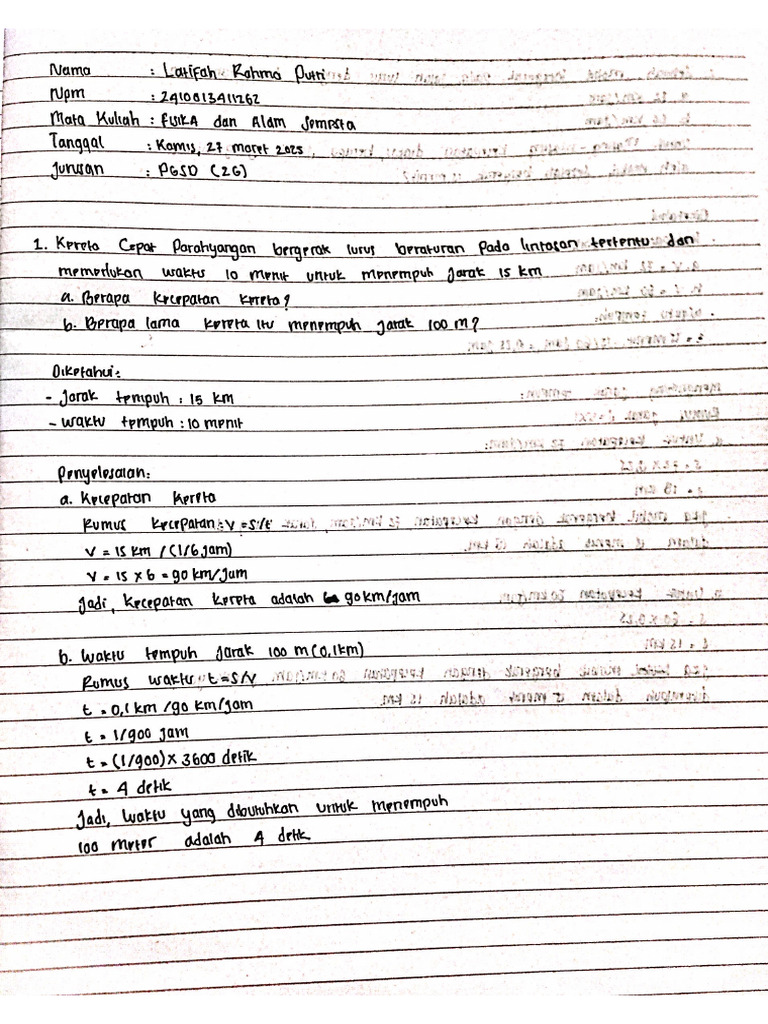 Nama : Latifah Rahma Putri
Npm : 2410013411262
Mata Kuliah : Fisika dan Alam Semesta
Tanggal : Kamis, 27 maret 2025
Jurusan : PGSD (2G)
1. Kereta Cepat Parahyangan bergerak lurus beraturan pada lintasan tertentu dan
memerlukan waktu 10 menit untuk menempuh jarak 15 km
a. Berapa kecepatan kereta?
b. Berapa lama kereta itu menempuh jarak 100 m?
Diketahui:
- Jarak tempuh : 15 km
- Waktu tempuh : 10 menit
Penyelesaian:
a. Kecepatan kereta
Rumus kecepatan: V = S/t
V = 15 km / (1/6 jam)
V = 15 x 6 = 90 km/jam
Jadi, kecepatan kereta adalah 90 km/jam
b. Waktu tempuh jarak 100 m (0,1 km)
Rumus waktu: t = S/V
t = 0,1 km / 90 km/jam
t = 1/900 jam
t = (1/900) x 3600 detik
t = 4 detik
Jadi, waktu yang dibutuhkan untuk menempuh
100 meter adalah 4 detik